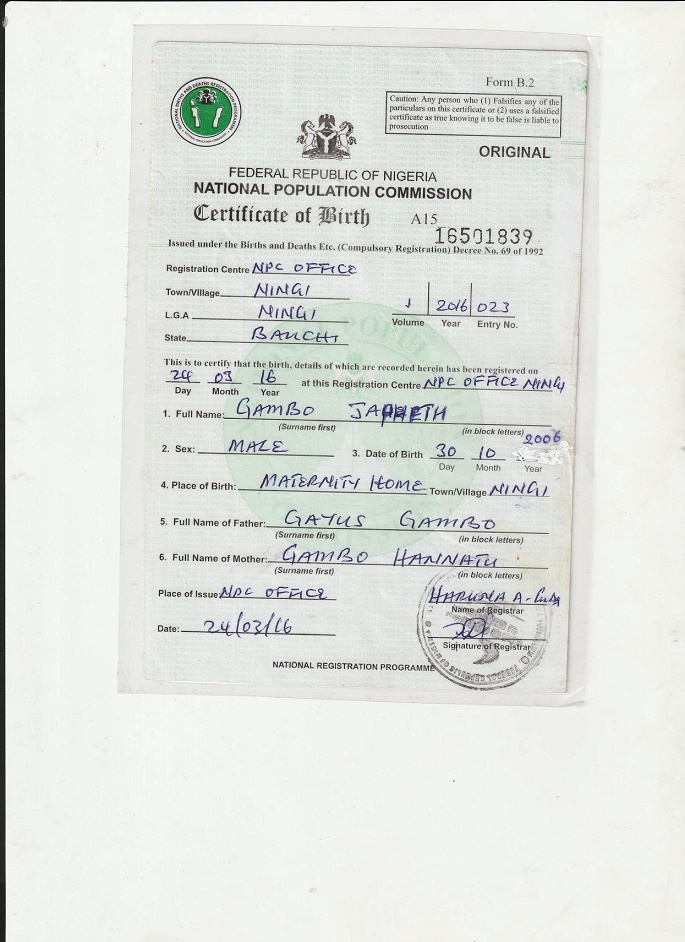 Form B.2
Caution: Any person who (1) Falsifies any of the
particulars on this certificate or (2) uses a falsified
certificate as true knowing it to be false is liable to
prosecution
NATIONAL BIRTHS AND DEATHS REGISTRATION PROGRAMME
ORIGINAL
FEDERAL REPUBLIC OF NIGERIA
NATIONAL POPULATION COMMISSION
Certificate of Birth A15
16501839
Issued under the Births and Deaths Etc. (Compulsory Registration) Decree No. 69 of 1992
Registration Centre NPC OFFICE
Town/Village NINGI
L.G.A NINGI
State BAUCHI
1 2016 023
Volume Year Entry No.
This is to certify that the birth, details of which are recorded herein has been registered on
24 03 16 at this Registration Centre NPC OFFICE NINGI
Day Month Year
1. Full Name: GAMBO JAPHETH
(Surname first) (in block letters)
2. Sex: MALE 3. Date of Birth 30 10 2006
Day Month Year
4. Place of Birth: MATERNITY HOME Town/Village NINGI
5. Full Name of Father: GAYUS GAMBO
(Surname first) (in block letters)
6. Full Name of Mother: GAMBO HANNATU
(Surname first) (in block letters)
Place of Issue NPC OFFICE HARUNA A.
Name of Registrar
Date: 24/03/16
Signature of Registrar
NATIONAL REGISTRATION PROGRAMME